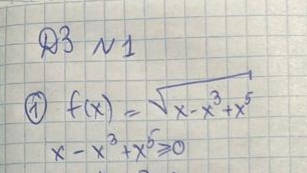 ДЗ №1
① f(x) = √(x - x³ + x⁵)
x - x³ + x⁵ ≥ 0